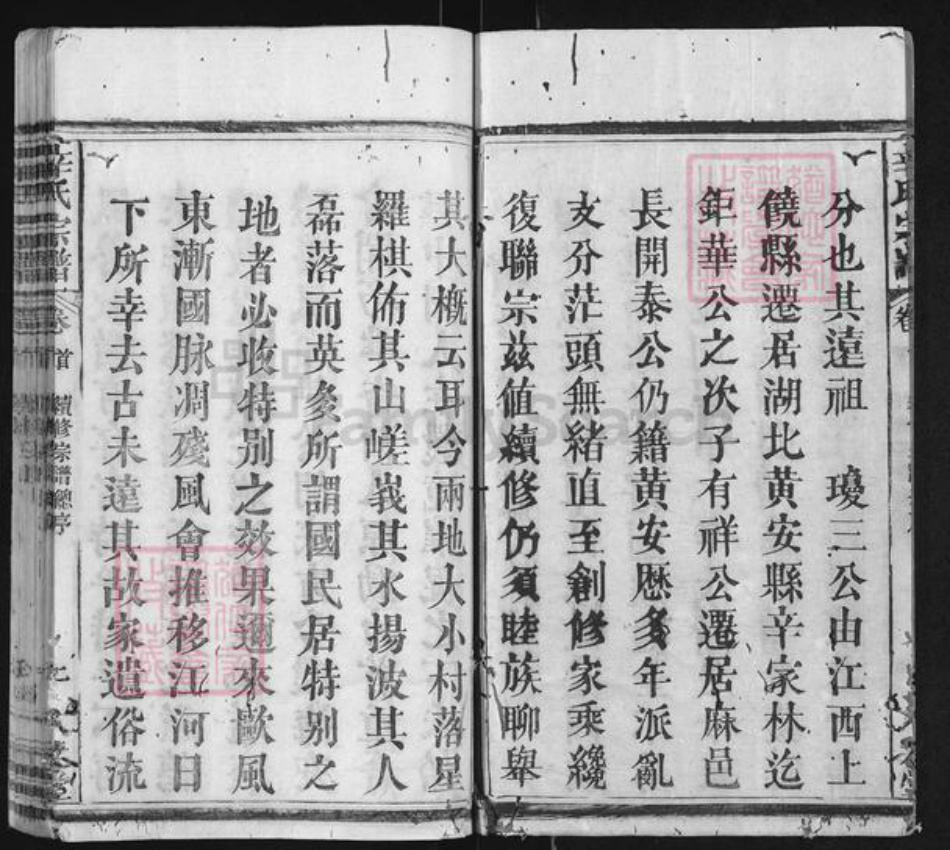 分也其遠祖 瓊三公由江西上
饒縣遷居湖北黃安縣辛家林迄
鉅華公之次子有祥公遷居麻邑
長開泰公仍籍黃安歷多年派亂
支分茫頭無緒直至創修家乘纔
復聯宗兹值續修仍須睦族聊舉
其大槪云耳今兩地大小村落星
羅棋佈其山嵯峩其水揚波其人
磊落而英多所謂國民居特別之
地者必收特別之效果邇來歐風
東漸國脉凋殘風會推移江河日
下所幸去古未遠其故家遺俗流
辛氏宗譜
卷首
續修宗譜總序
FamilySearch